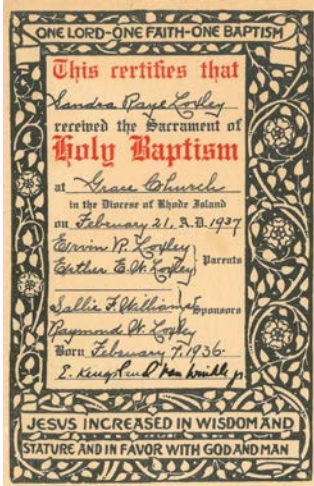 ONE LORD-ONE FAITH-ONE BAPTISM
This certifies that
Sandra Raye Loxley
received the Sacrament of
Holy Baptism
at Grace Church
in the Diocese of Rhode Island
on February 21, A.D. 1937
Ervin P. Loxley
Esther E. W. Loxley } Parents
Sallie F. Williams } Sponsors
Raymond W. Loxley
Born February 7, 1936.
E. Kingsland Van Winkle Jr.
JESUS INCREASED IN WISDOM AND
STATURE AND IN FAVOR WITH GOD AND MAN